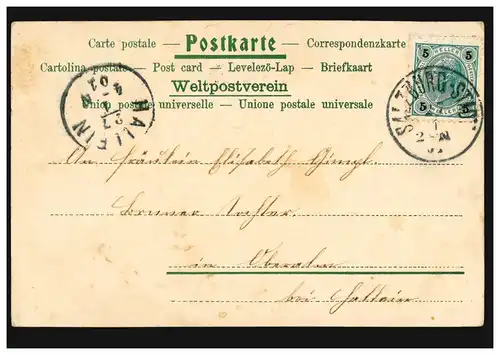 Carte postale — Postkarte — Correspondenzkarte
Cartolina postale — Post card — Levelező-Lap — Briefkaart
Weltpostverein
Union postale universelle — Unione postale universale
5 HELLER 5
5 5
SALZBURG STADT
HALLEIN
27
An Fräulein Elisabeth
in Oberalm
bei Hallein